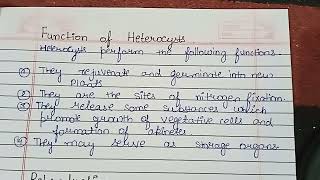 Function of Heterocysts
Heterocysts perform the following functions.
① They rejuvenate and germinate into new
plants
② They are the sites of nitrogen fixation.
③ They release some substances which
promote growth of vegetative cells and
formation of akinetes
④ They may serve as storage organs